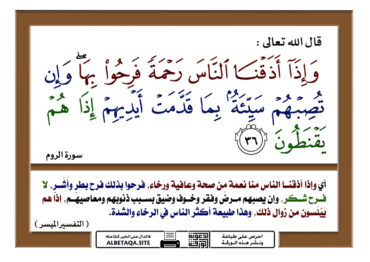 قال الله تعالى :
وَإِذَآ أَذَقْنَا ٱلنَّاسَ رَحْمَةً فَرِحُوا۟ بِهَا ۖ وَإِن
تُصِبْهُمْ سَيِّئَةٌۢ بِمَا قَدَّمَتْ أَيْدِيهِمْ إِذَا هُمْ
يَقْنَطُونَ ٣٦
سورة الروم
أي وإذا أذقنا الناس منا نعمة من صحة وعافية ورخاء، فرحوا بذلك فرح بطر وأشر، لا
فرح شكر، وإن يصبهم مرض وفقر وخوف وضيق بسبب ذنوبهم ومعاصيهم، إذا هم
ييئسون من زوال ذلك، وهذا طبيعة أكثر الناس في الرخاء والشدة.
(التفسير الميسر)
احرص على طباعة
ونشر هذه الورقة
فالدال على الخير كفاعله
ALBETAQA.SITE